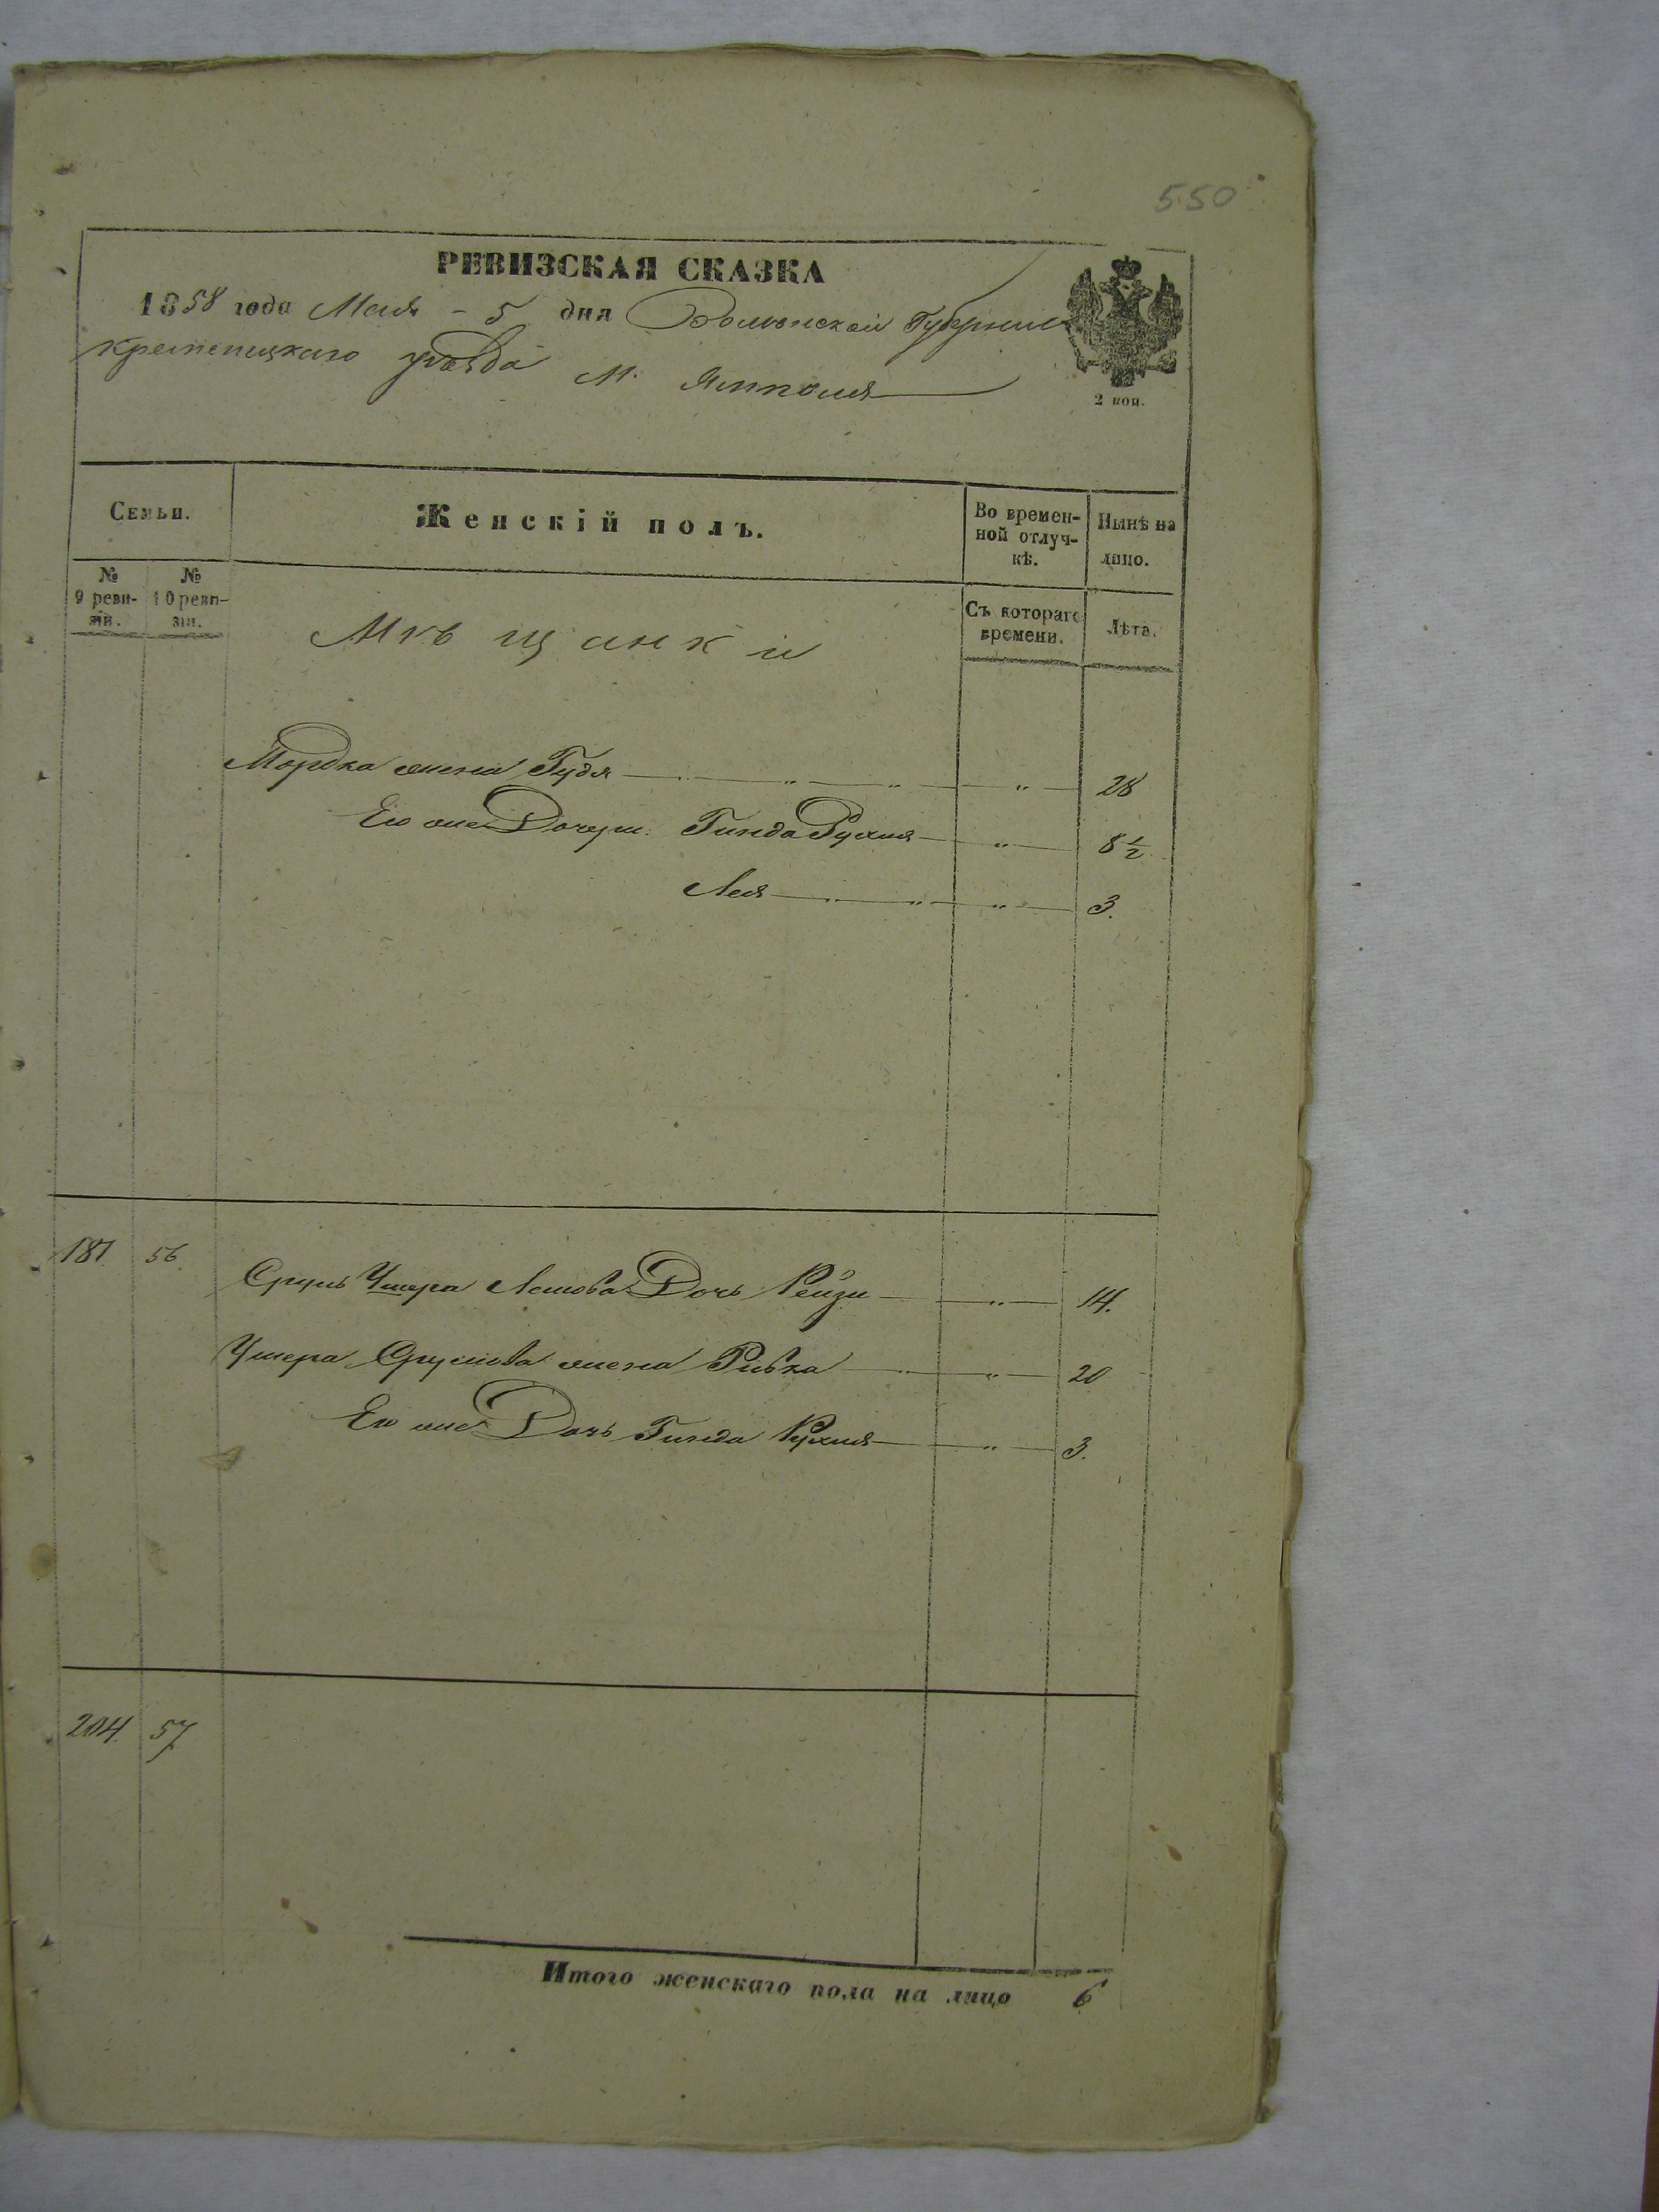 550
РЕВИЗСКАЯ СКАЗКА
1858 года Мая - 5 дня Волынской Губернии
Кременецкаго уѣзда М. Ямполя
2 коп.
Семьи.
Женскій полъ.
Во времен-
ной отлуч-
кѣ.
Нынѣ на
лицо.
№
9 реви-
зіи.
№
10 реви-
зіи.
Мѣщанки
Съ котораго
времени.
Лѣта.
Мордка жена Гудя " 28
Его же Дочери: Гинда Рухля " 8 1/2
Лея " 3.
187 56. Сруль Лейбова Дочь Рейзи " 14.
Срулева жена Ривка " 20
Его же Дочь Гинда Рухля " 3.
204. 57
Итого женскаго пола на лицо 6